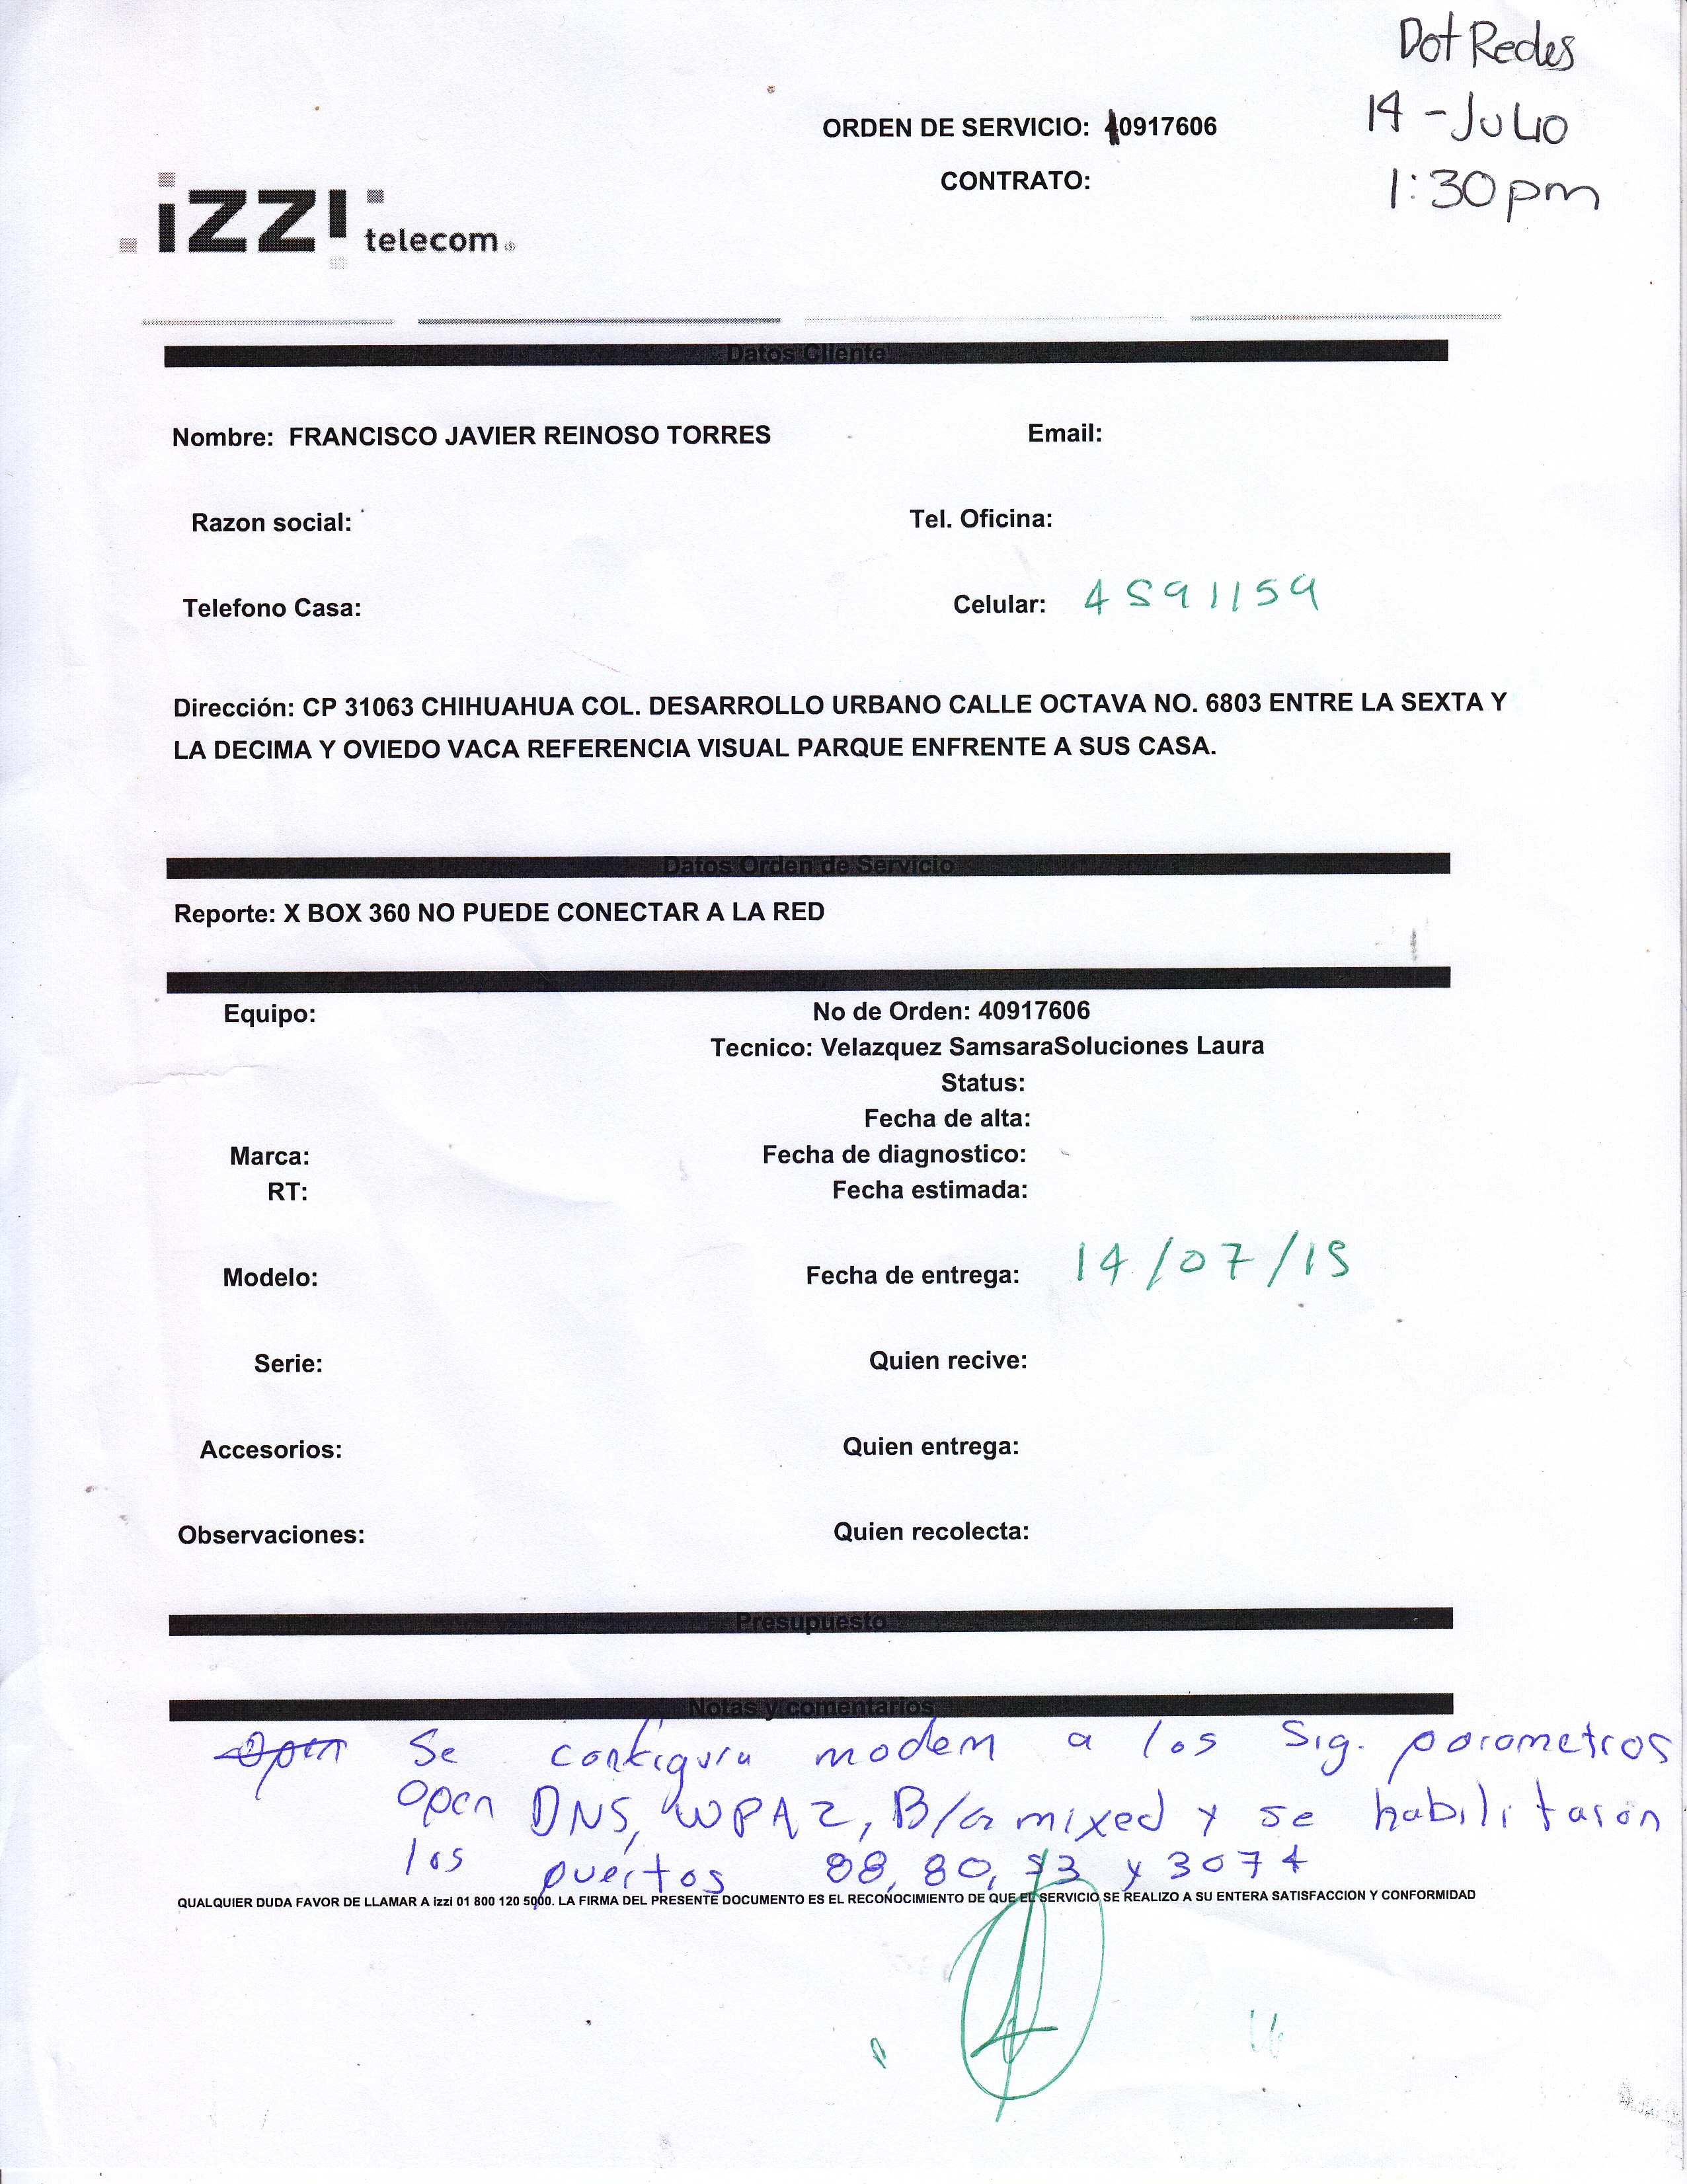 Dot Redes
14 - Julio
1:30 pm
ORDEN DE SERVICIO: 40917606
CONTRATO:
izzi telecom
Datos Cliente
Nombre: FRANCISCO JAVIER REINOSO TORRES
Email:
Razon social:
Tel. Oficina:
Telefono Casa:
Celular: 4591159
Dirección: CP 31063 CHIHUAHUA COL. DESARROLLO URBANO CALLE OCTAVA NO. 6803 ENTRE LA SEXTA Y
LA DECIMA Y OVIEDO VACA REFERENCIA VISUAL PARQUE ENFRENTE A SUS CASA.
Datos Orden de Servicio
Reporte: X BOX 360 NO PUEDE CONECTAR A LA RED
Equipo:
No de Orden: 40917606
Tecnico: Velazquez SamsaraSoluciones Laura
Status:
Fecha de alta:
Marca:
Fecha de diagnostico:
RT:
Fecha estimada:
Modelo:
Fecha de entrega: 14/07/15
Serie:
Quien recive:
Accesorios:
Quien entrega:
Observaciones:
Quien recolecta:
Presupuesto
Notas y comentarios
Open Se configura modem a los Sig. parametros
Open DNS, WPA2, B/G mixed y se habilitaron
los puertos 88, 80, 53 y 3074
QUALQUIER DUDA FAVOR DE LLAMAR A izzi 01 800 120 5000. LA FIRMA DEL PRESENTE DOCUMENTO ES EL RECONOCIMIENTO DE QUE EL SERVICIO SE REALIZO A SU ENTERA SATISFACCION Y CONFORMIDAD